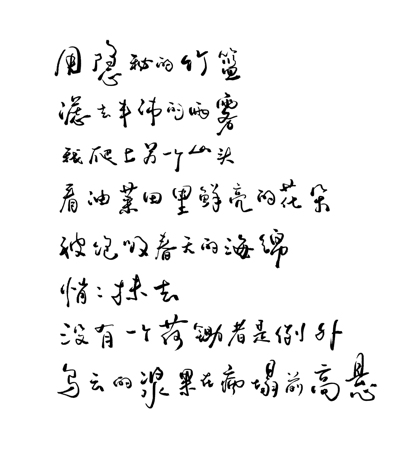 用隐秘的竹篮
滤去丰沛的雨雾
我爬上另一个山头
看油菜田里鲜亮的花朵
被饱吸春天的海绵
悄悄抹去
没有一个荷锄者是例外
乌云的浆果在病榻前高悬